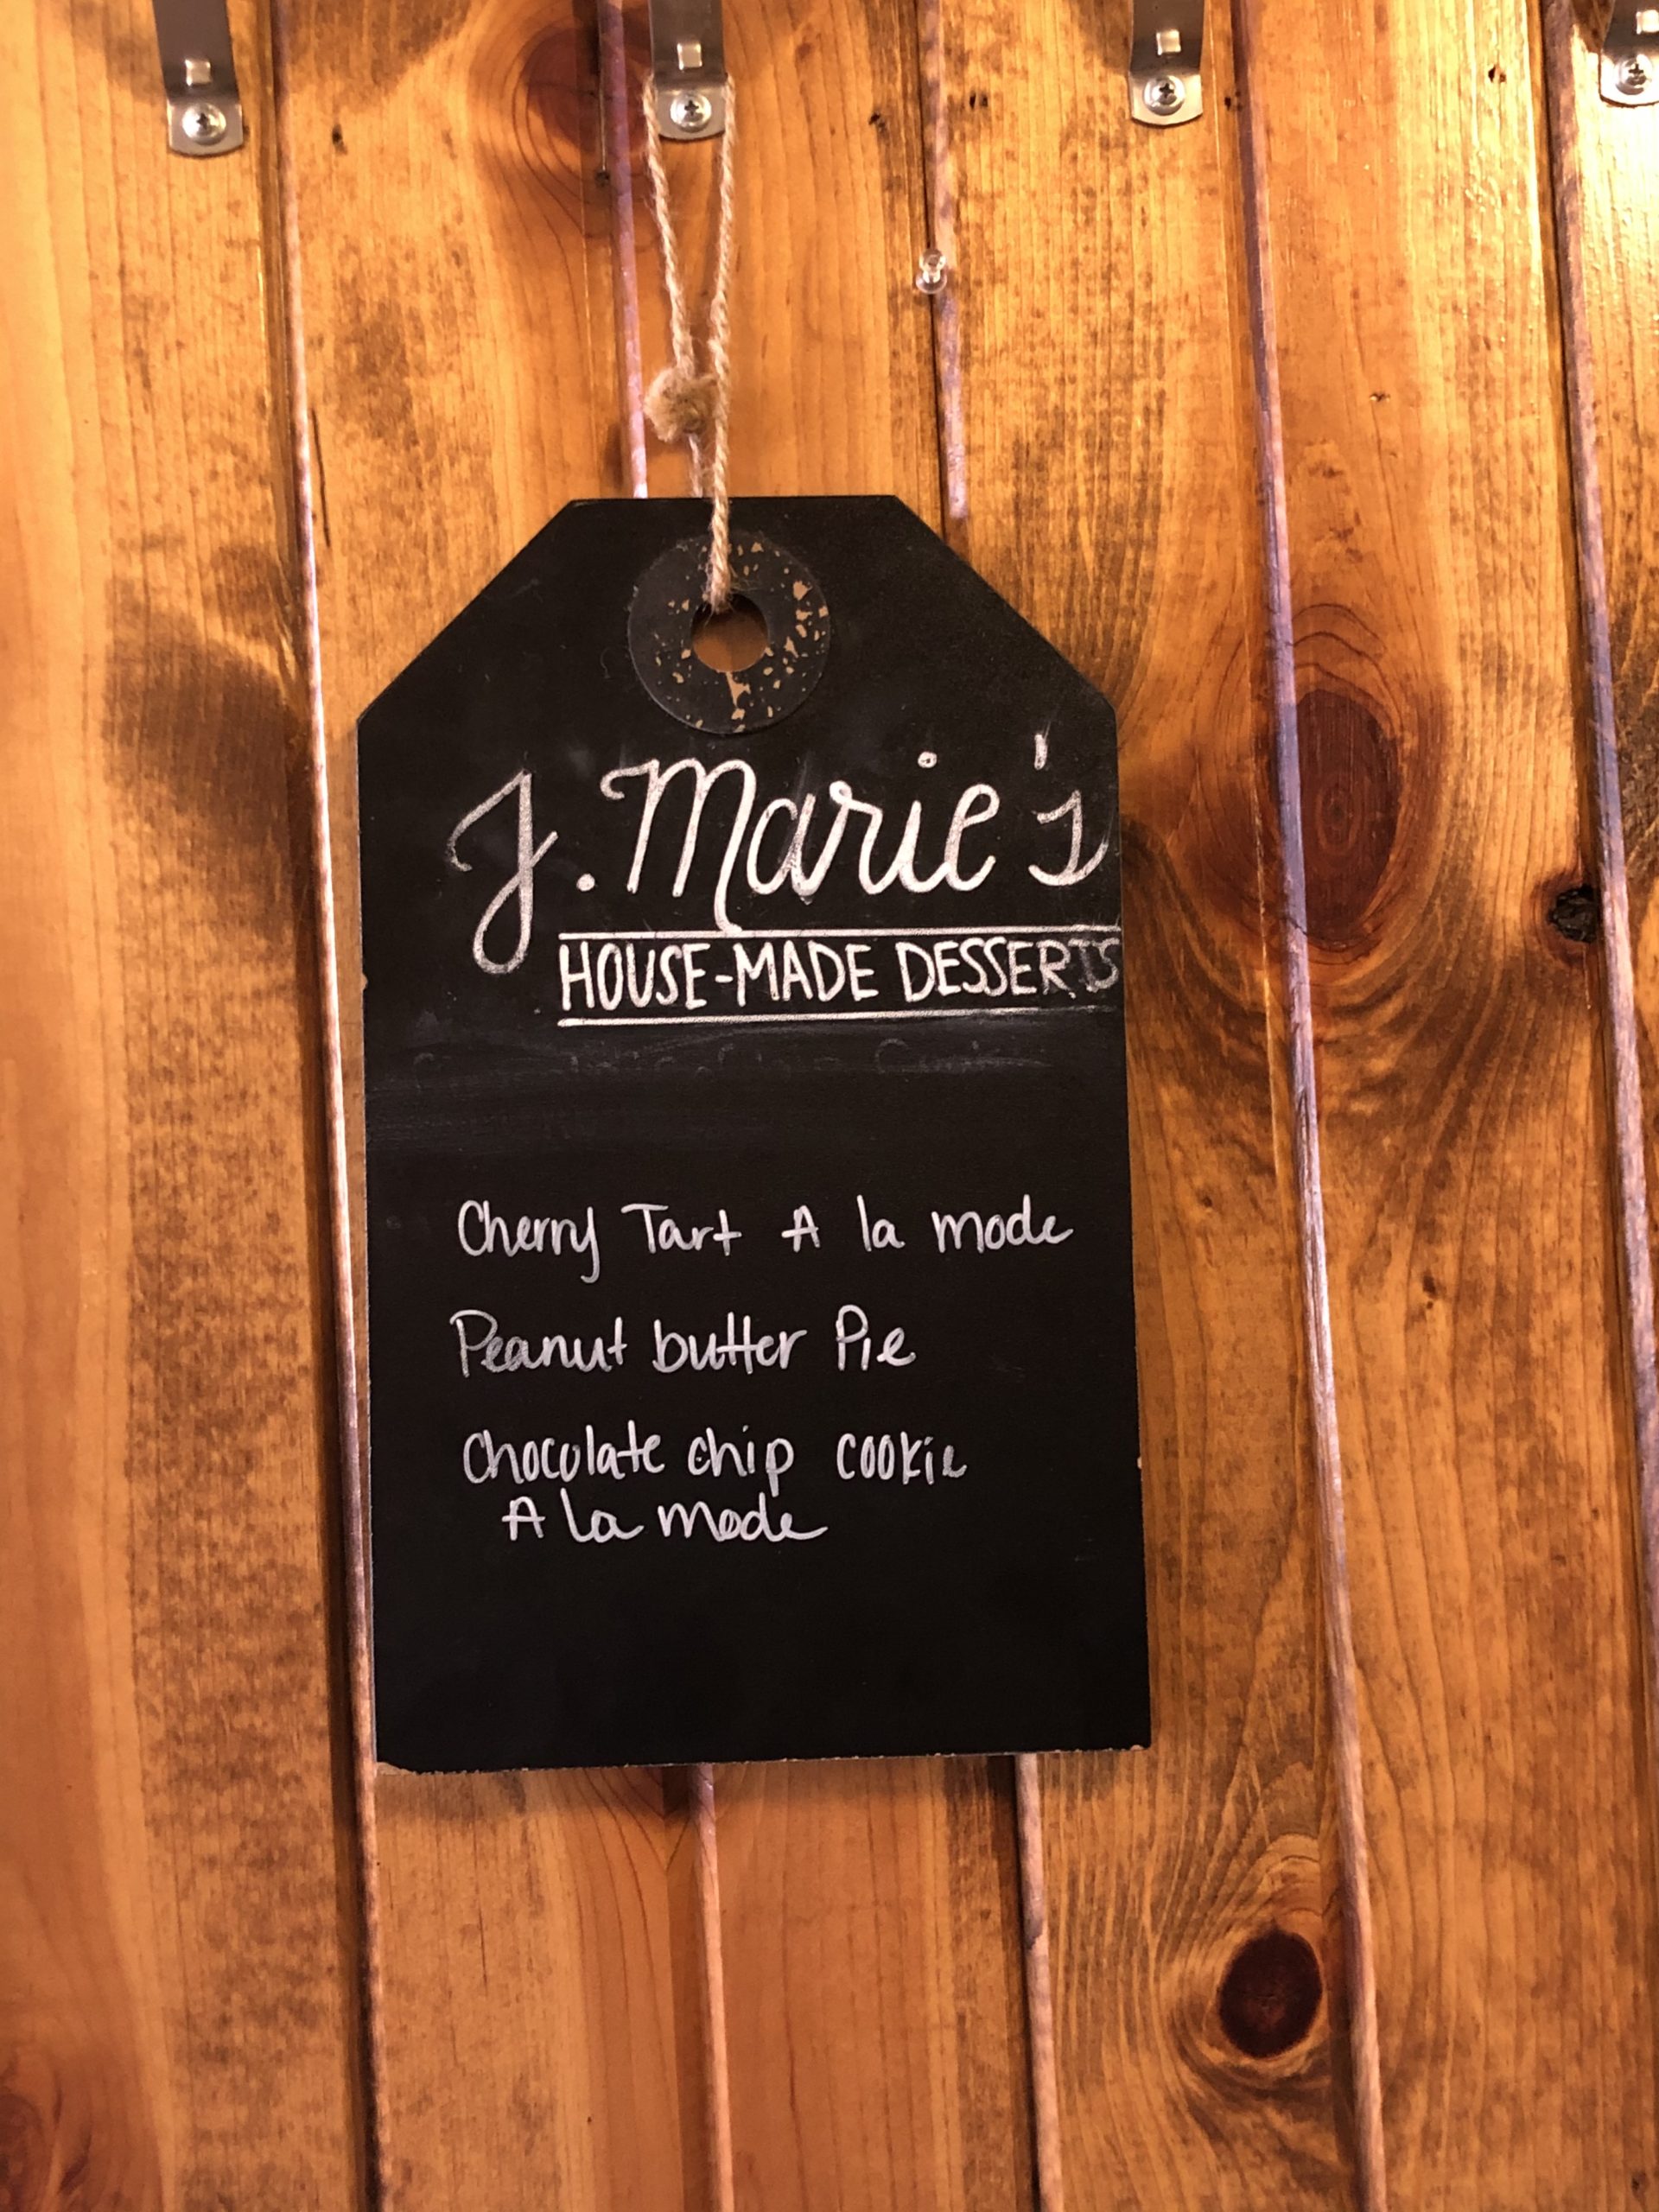 J. Marie's
HOUSE-MADE DESSERTS
Cherry Tart A la mode
Peanut butter Pie
Chocolate chip cookie
A la mode